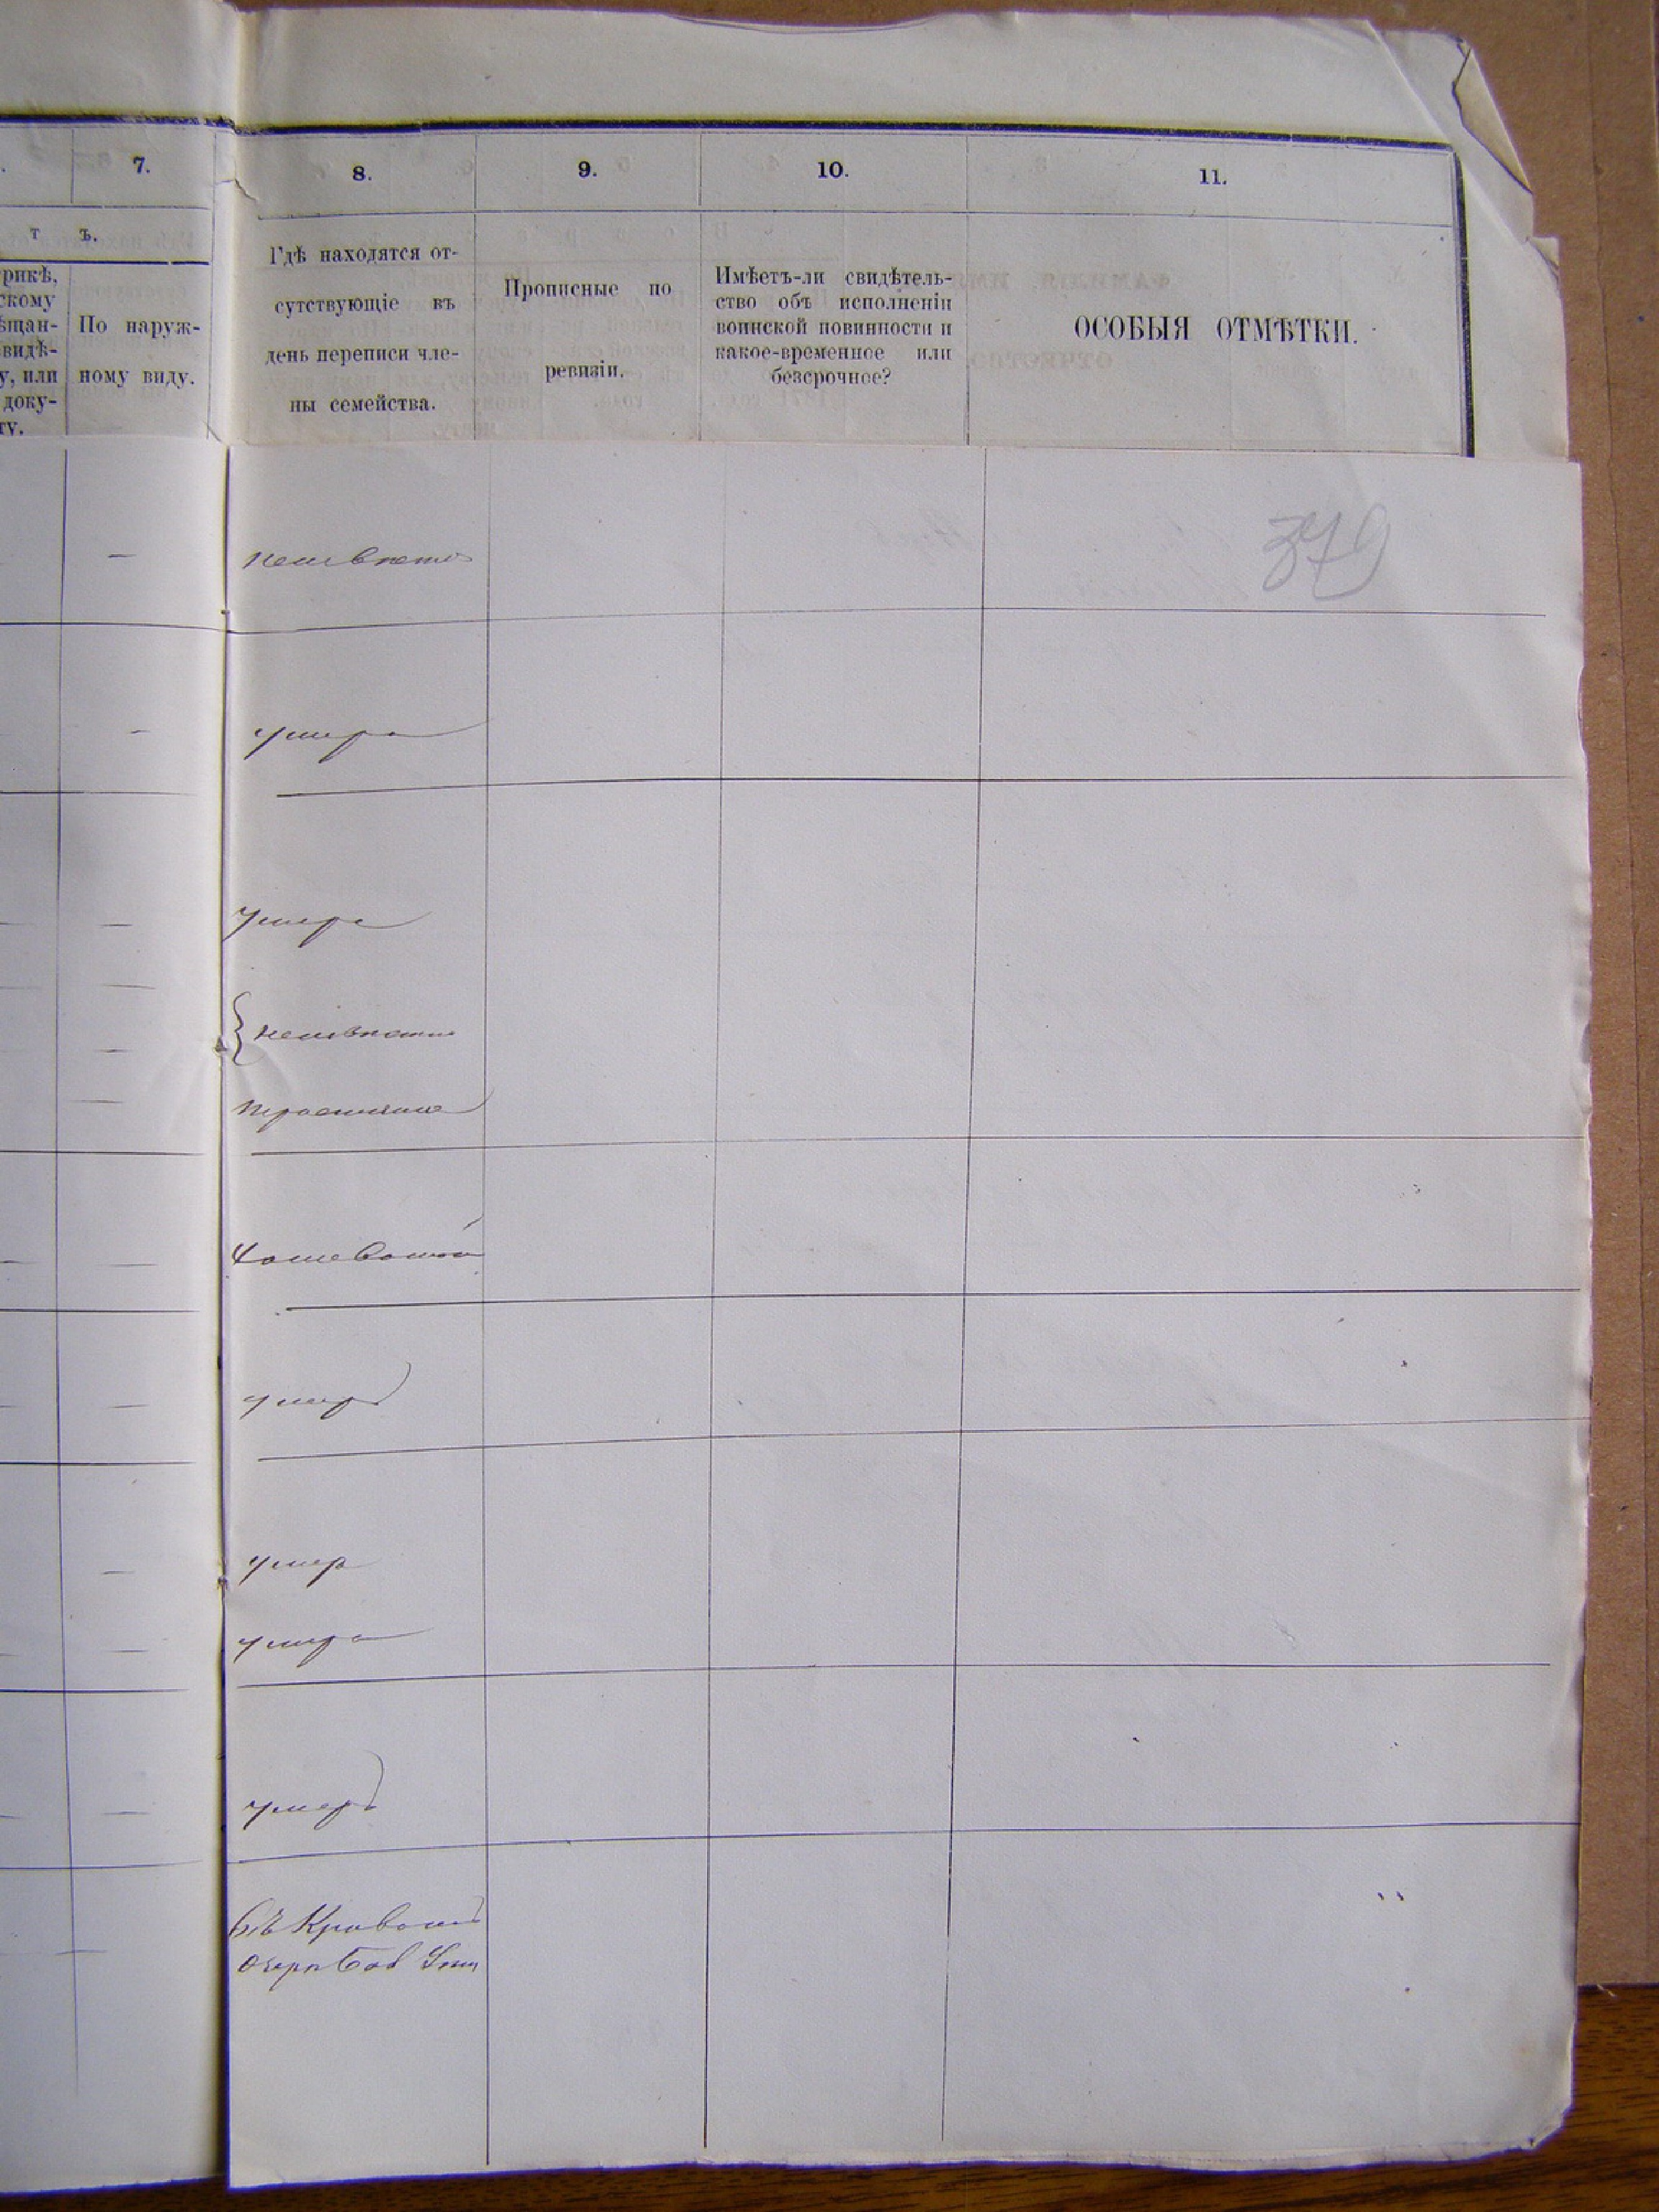 7.
8.
9.
10.
11.
т ъ.
рикѣ,
скому
ѣщан-
видѣ-
у, или
доку-
ту.
По наруж-
ному виду.
Гдѣ находятся от-
сутствующіе въ
день переписи чле-
ны семейства.
Прописные по
ревизіи.
Имѣетъ-ли свидѣтель-
ство объ исполненіи
воинской повинности и
какое-временное или
безсрочное?
ОСОБЫЯ ОТМѢТКИ.
379
умера
Умера
умеръ
умер
умера
умеръ